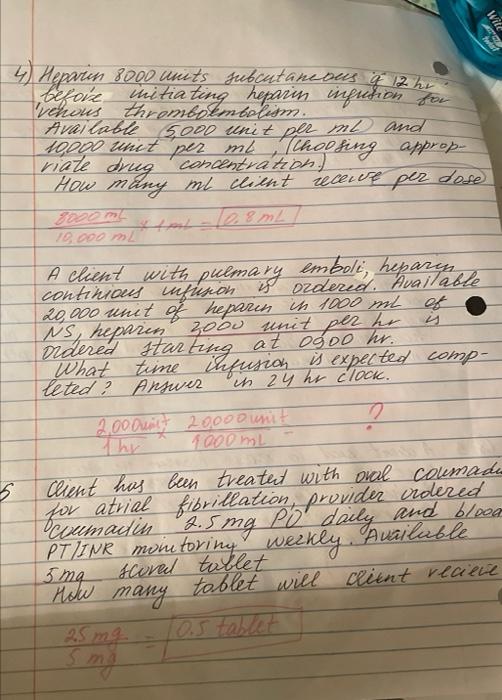 4) Heparin 8000 units subcutaneous q 12 hr
before initiating heparin infusion for
venous thromboembolism.
Available 5000 unit per ml and
10,000 unit per ml, (Choosing approp-
riate drug concentration.)
How many ml client receive per dose
8000 mL
10,000 mL × 1 mL = 0.8 mL
A client with pulmary emboli, heparin
continious infusion is ordered. Available
20,000 unit of heparin in 1000 ml of
NS, heparin 2,000 unit per hr is
ordered starting at 0900 hr.
What time infusion is expected comp-
leted? Answer in 24 hr clock.
2,000 unit × 20,000 unit = ?
1 hr 1000 mL
5 Client has been treated with oral coumad
for atrial fibrillation, provider ordered
Coumadin 2.5 mg PO daily and blood
PT/INR monitoring weekly. Available
5 mg scored tablet
How many tablet will client recieve
2.5 mg = 0.5 tablet
5 mg